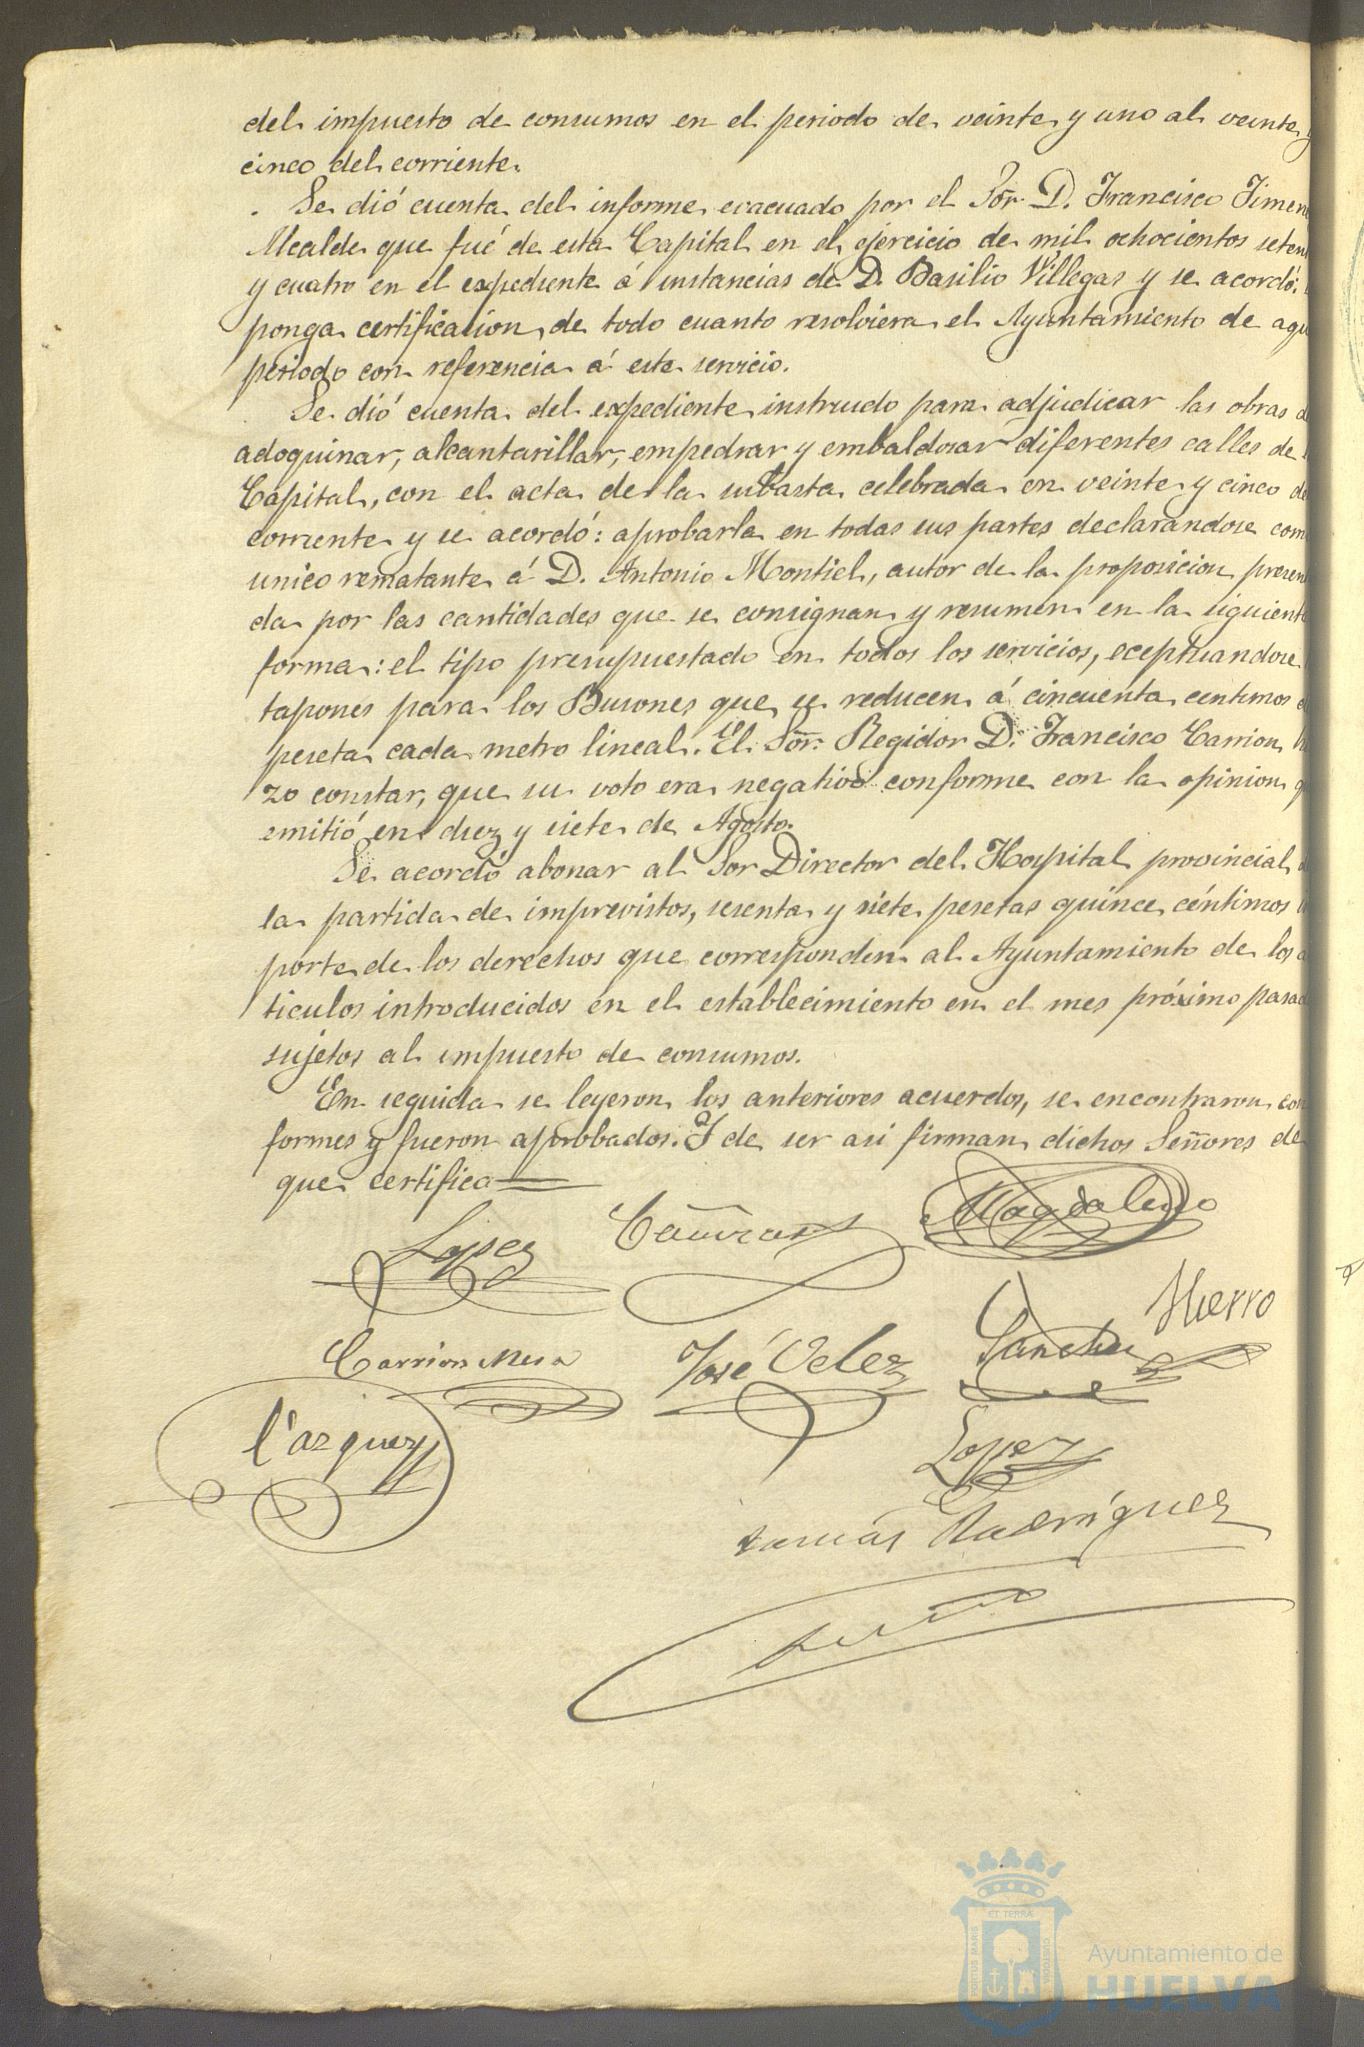 del impuesto de consumos en el periodo de veinte y uno al veinte y
cinco del corriente.
Se dió cuenta del informe evacuado por el Sor. D. Francisco Jimen
Alcalde que fué de esta Capital en el ejercicio de mil ochocientos seten
y cuatro en el expediente á instancias de D. Basilio Villegas y se acordó:
ponga certificacion de todo cuanto resolviera el Ayuntamiento de aqu
periodo con referencia á este servicio.
Se dió cuenta del expediente instruido para adjudicar las obras d
adoquinar, alcantarillar, empedrar y embaldosar diferentes calles de
Capital, con el acta de la subasta celebrada en veinte y cinco de
corriente y se acordó: aprobarla en todas sus partes declarandose com
unico rematante á D. Antonio Montiel, autor de la proposicion presen
da por las cantidades que se consignan y resumen en la siguiente
forma: el tipo presupuestado en todos los servicios, eceptuandose
tapones para los Busones que se reducen á cincuenta centimos
peseta cada metro lineal. El Sor. Regidor D. Francisco Carrion hi
zo constar, que su voto era negativo conforme con la opinion q
emitió en diez y siete de Agosto.
Se acordó abonar al Sor Director del Hospital provincial
la partida de imprevistos, sesenta y siete pesetas quince céntimos
porte de los derechos que corresponden al Ayuntamiento de los a
ticulos introducidos en el establecimiento en el mes próximo pasad
sujetos al impuesto de consumos.
En seguida se leyeron los anteriores acuerdos, se encontraron con
formes y fueron aprobados. Y de ser asi firman dichos Señores de
que certifico
Lopez Magdaleno
Hierro
Carrion Mesa José Velez Sanchez
Vazquez
Lopez
Tomás Rodriguez
ET TERRÆ
PORTUS MARIS
CUSTODIA
Ayuntamiento de
HUELVA